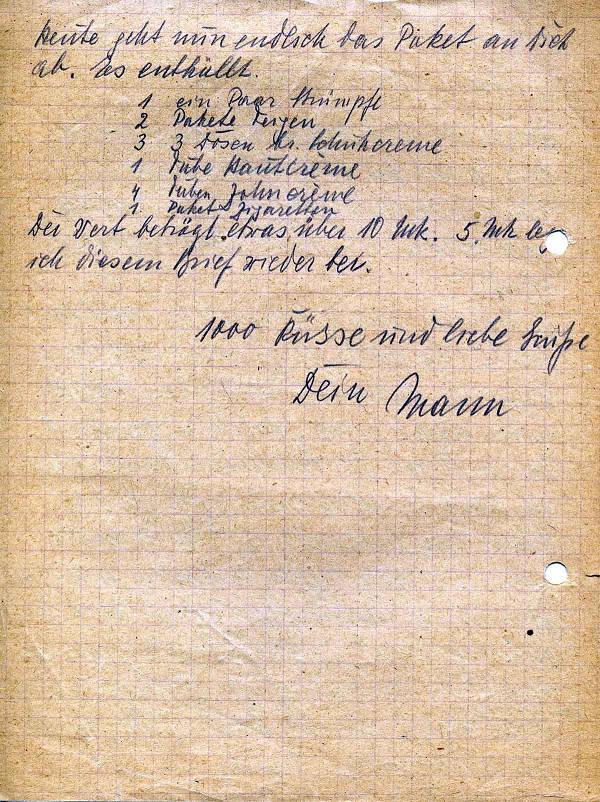 Heute geht nun endlich das Paket an Dich
ab. Es enthällt.
1 ein Paar Strümpfe
2 Pakete Feigen
3 3 Dosen Schuhcreme
1 Tube Hautcrème
4 Tuben Zahncrème
1 Paket Zigaretten
Der Wert beträgt etwas über 10 Mk. 5. Mk leg
ich diesem Brief wieder bei.
1000 Küsse und liebe Grüße
Dein Mann